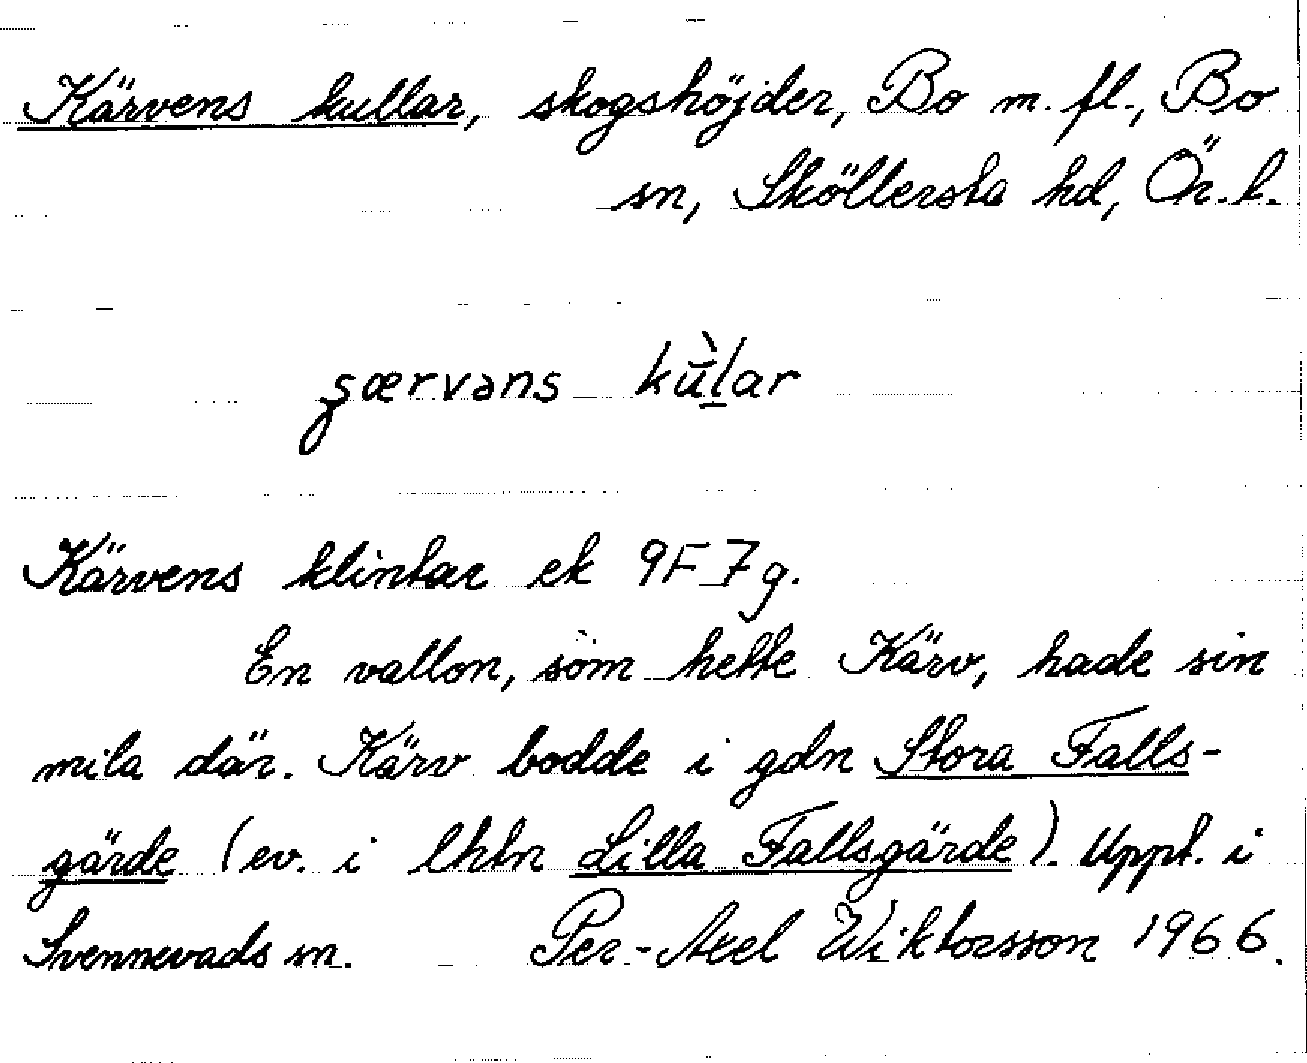 Kärvens kullar, skogshöjder, Bo m. fl., Bo
sn, Sköllersta hd, Ör. l.
kùlar
Kärvens klintar ek 9F 7g.
En vallon, som hette Kärv, hade sin
mila där. Kärv bodde i gdn Stora Falls-
gärde (ev. i lhtn Lilla Fallsgärde). Uppt. i
Svennevads sn. Per-Axel Wiktorsson 1966.